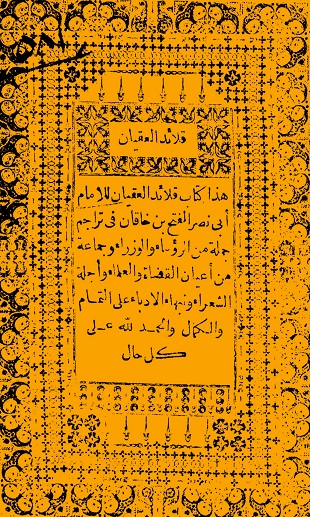 قلائد العقيان
هذا كتاب قلائد العقيان للامام
أبى نصر الفتح بن خاقان فى تراجم
جملة من الرؤساء والوزراء وجماعة
من أعيان القضاة والعلماء وأجلة
الشعراء ونبهاء الادباء على التمام
والكمال والحمد لله عـلـى
كل حال